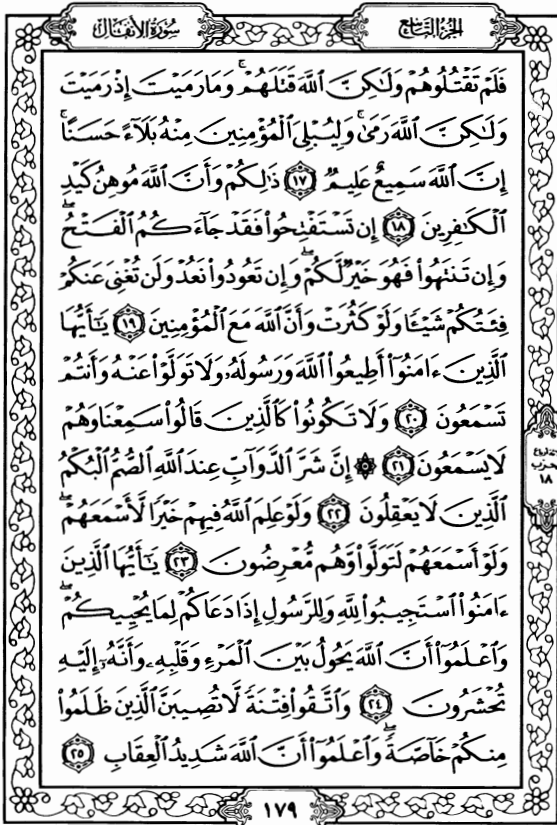 سُورَةُ الأَنفَال
الجُزْءُ التَّاسِعُ
فَلَمْ تَقْتُلُوهُمْ وَلَٰكِنَّ ٱللَّهَ قَتَلَهُمْ ۚ وَمَا رَمَيْتَ إِذْ رَمَيْتَ
وَلَٰكِنَّ ٱللَّهَ رَمَىٰ ۚ وَلِيُبْلِىَ ٱلْمُؤْمِنِينَ مِنْهُ بَلَآءً حَسَنًا ۚ
إِنَّ ٱللَّهَ سَمِيعٌ عَلِيمٌ ١٧ ذَٰلِكُمْ وَأَنَّ ٱللَّهَ مُوهِنُ كَيْدِ
ٱلْكَٰفِرِينَ ١٨ إِن تَسْتَفْتِحُوا۟ فَقَدْ جَآءَكُمُ ٱلْفَتْحُ ۖ
وَإِن تَنتَهُوا۟ فَهُوَ خَيْرٌ لَّكُمْ ۖ وَإِن تَعُودُوا۟ نَعُدْ وَلَن تُغْنِىَ عَنكُمْ
فِئَتُكُمْ شَيْـًٔا وَلَوْ كَثُرَتْ وَأَنَّ ٱللَّهَ مَعَ ٱلْمُؤْمِنِينَ ١٩ يَٰٓأَيُّهَا
ٱلَّذِينَ ءَامَنُوٓا۟ أَطِيعُوا۟ ٱللَّهَ وَرَسُولَهُۥ وَلَا تَوَلَّوْا۟ عَنْهُ وَأَنتُمْ
تَسْمَعُونَ ٢٠ وَلَا تَكُونُوا۟ كَٱلَّذِينَ قَالُوا۟ سَمِعْنَا وَهُمْ
لَا يَسْمَعُونَ ٢١ ۞ إِنَّ شَرَّ ٱلدَّوَآبِّ عِندَ ٱللَّهِ ٱلصُّمُّ ٱلْبُكْمُ
ٱلَّذِينَ لَا يَعْقِلُونَ ٢٢ وَلَوْ عَلِمَ ٱللَّهُ فِيهِمْ خَيْرًا لَّأَسْمَعَهُمْ ۖ
وَلَوْ أَسْمَعَهُمْ لَتَوَلَّوا۟ وَّهُم مُّعْرِضُونَ ٢٣ يَٰٓأَيُّهَا ٱلَّذِينَ
ءَامَنُوا۟ ٱسْتَجِيبُوا۟ لِلَّهِ وَلِلرَّسُولِ إِذَا دَعَاكُمْ لِمَا يُحْيِيكُمْ ۖ
وَٱعْلَمُوٓا۟ أَنَّ ٱللَّهَ يَحُولُ بَيْنَ ٱلْمَرْءِ وَقَلْبِهِۦ وَأَنَّهُۥٓ إِلَيْهِ
تُحْشَرُونَ ٢٤ وَٱتَّقُوا۟ فِتْنَةً لَّا تُصِيبَنَّ ٱلَّذِينَ ظَلَمُوا۟
مِنكُمْ خَآصَّةً ۖ وَٱعْلَمُوٓا۟ أَنَّ ٱللَّهَ شَدِيدُ ٱلْعِقَابِ ٢٥
حزب
١٨
١٧٩